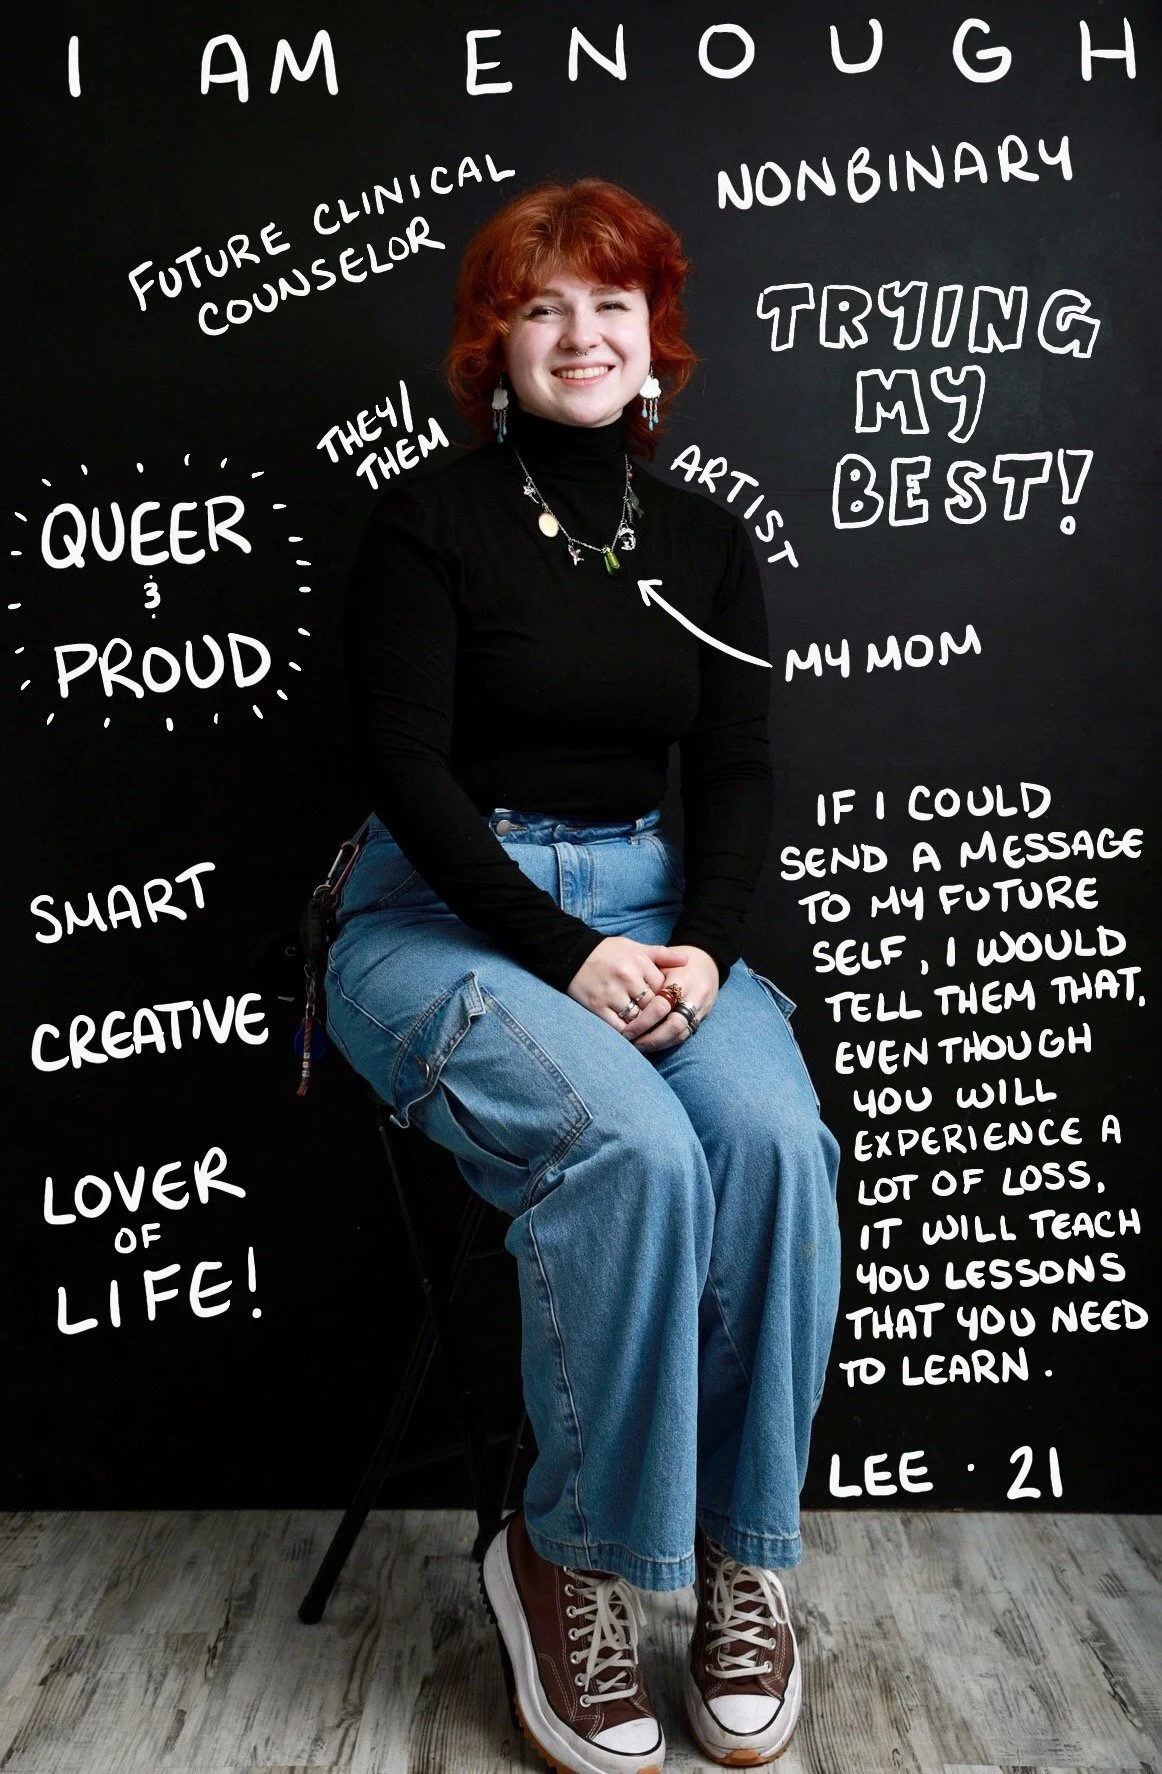 I AM ENOUGH
FUTURE CLINICAL
COUNSELOR
NONBINARY
TRYING
MY
BEST!
THEY/
THEM
ARTIST
QUEER
&
PROUD
MY MOM
SMART
CREATIVE
LOVER
OF
LIFE!
IF I COULD
SEND A MESSAGE
TO MY FUTURE
SELF, I WOULD
TELL THEM THAT,
EVEN THOUGH
YOU WILL
EXPERIENCE A
LOT OF LOSS,
IT WILL TEACH
YOU LESSONS
THAT YOU NEED
TO LEARN.
LEE · 21